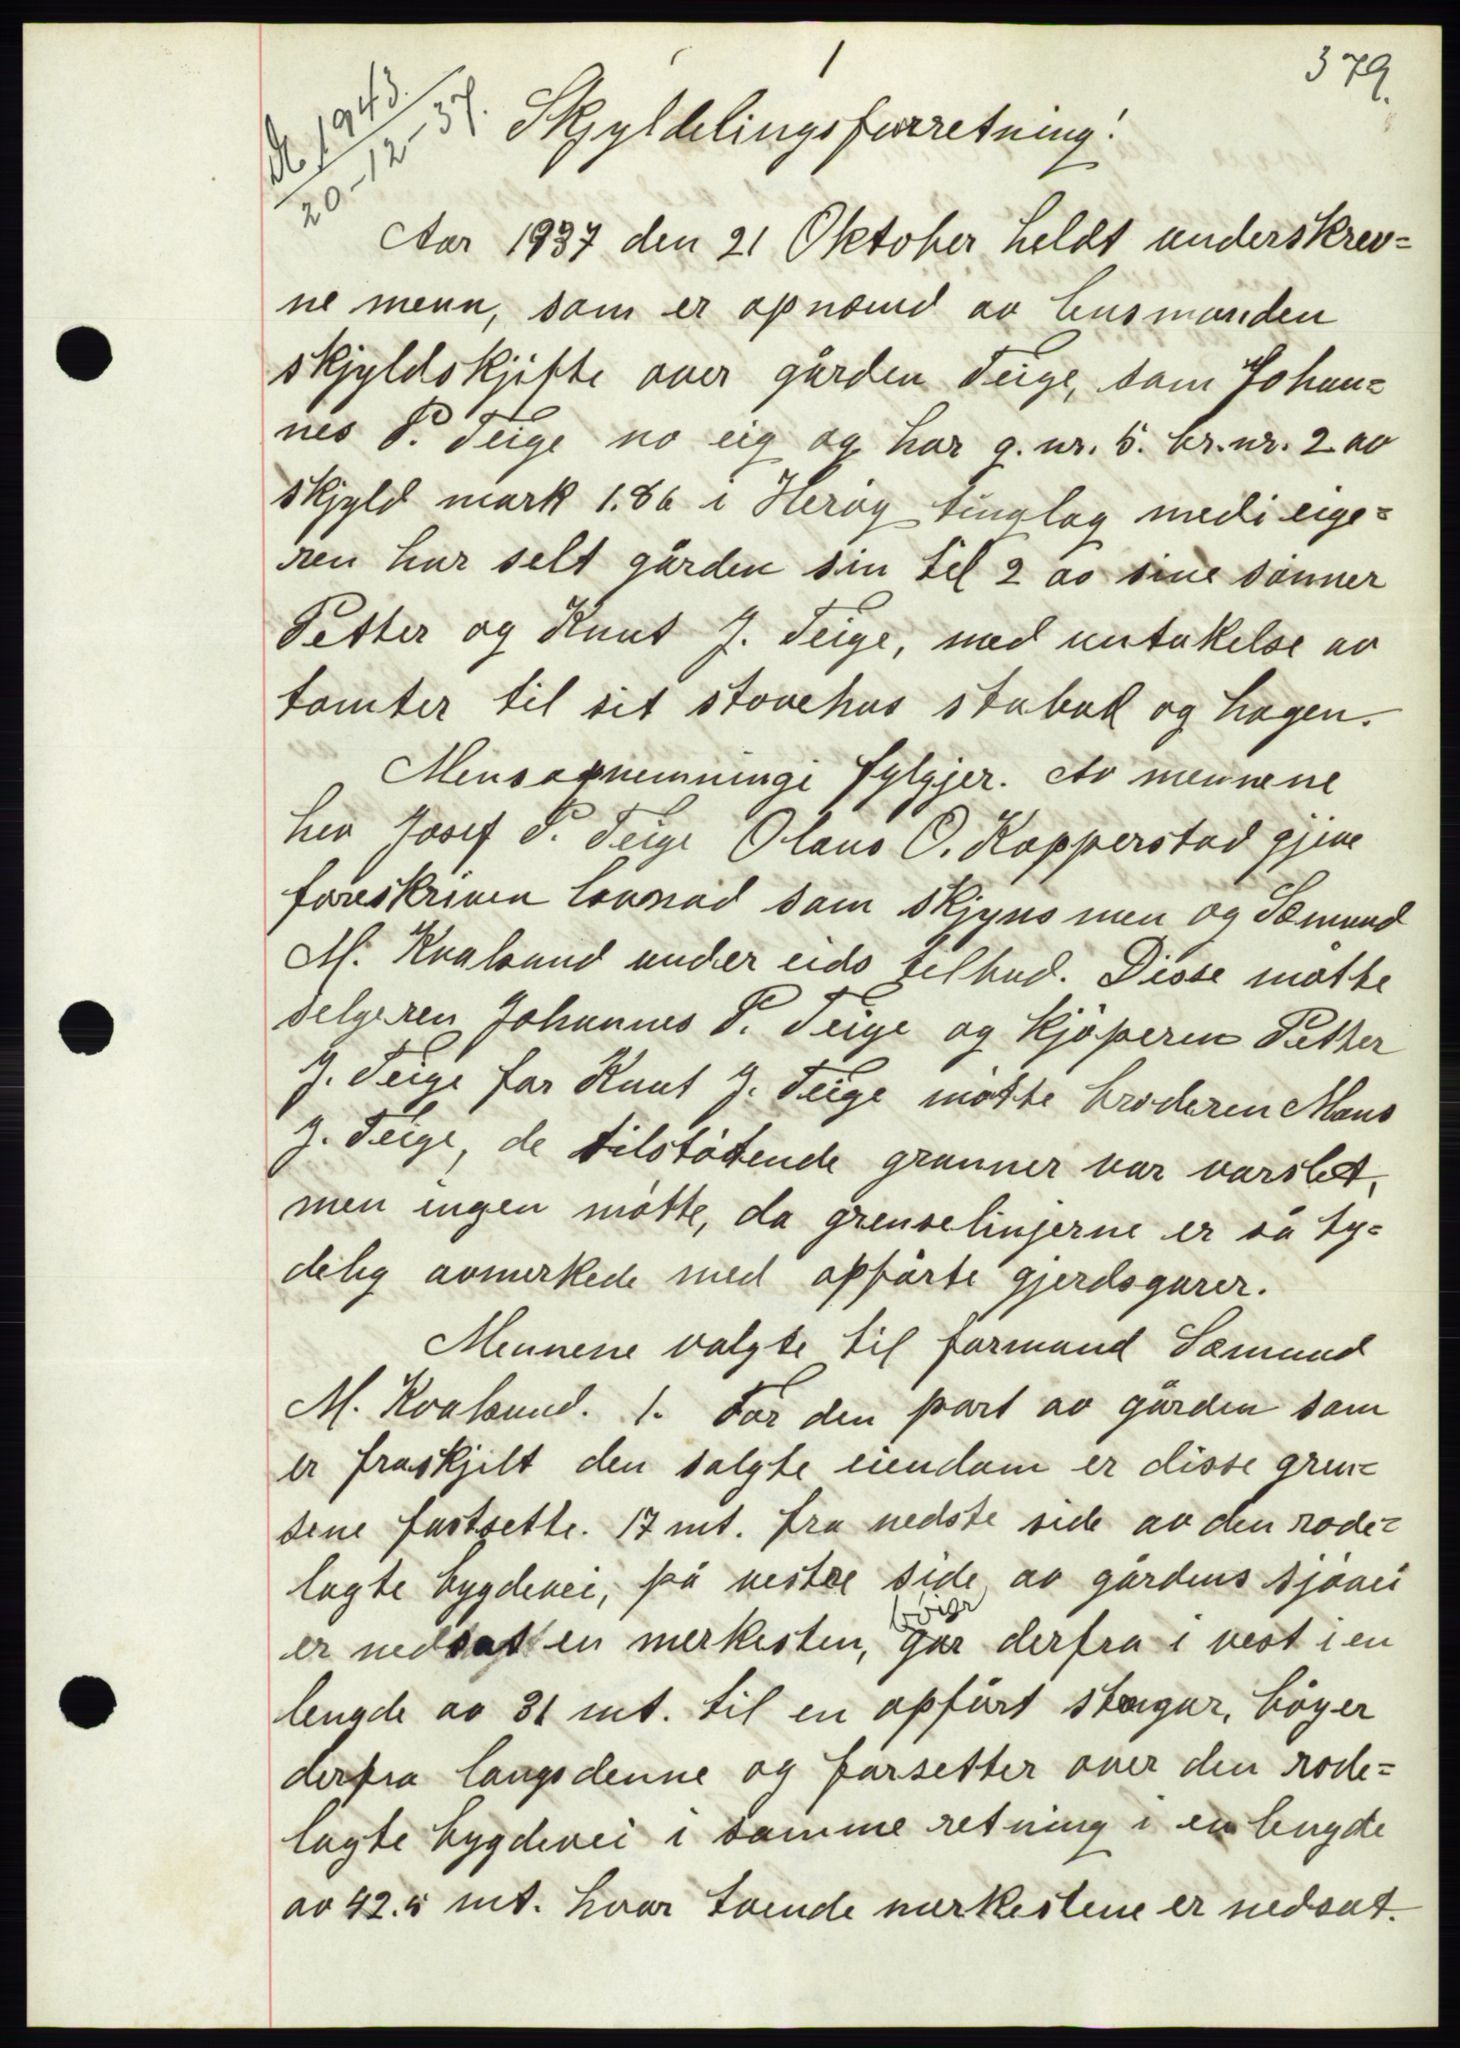 1
379.
No 1943.
20-12-37.
Skjyldelingsforretning!
Aar 1937 den 21 Oktober heldt underskrev=
ne menn, som er opnæmd av lensmanden
skjyldskjifte over gården Teige, som Johan=
nes P. Teige no eig og har g.nr. 5. br.nr. 2 av
skjyld mark 1.86 i Herøy tinglag medi eige=
ren har selt gården sin til 2 av sine sønner
Petter og Knut J. Teige, med untakelse av
tomter til sit stovehus stabud og hagen.
Mensopnemningi fylgjer. Av mennene
hev Josef P. Teige Olaus O. Kopperstad gjeve
foreskriven lovnad som skjyns men og Sæmund
M. Kvalsund under eids tilbud. Disse møtte
selgeren Johannes P. Teige og kjøperen Petter
J. Teige for Knut J. Teige møtte broderen Mons
J. Teige, de tilstøtende granner var varslet,
men ingen møtte, da grenselinjerne er så ty=
delig avmerkede med opførte gjerdsgarer.
Mennene valgte til formand Sæmund
M. Kvalsund. 1. For den part av gården som
er fraskjilt den salgte eiendom er disse gren=
sene fastsette. 17 mt. fra nedste side av den rode=
lagte bygdevei, på vestre side av gårdens sjøvei
er nedsat en merkesten, går derfra i vest i en
bøier
lengde av 31 mt. til en opført stengar, bøyer
derfra langs denne og forsetter over den rode=
lagte bygdevei i samme retning i en lengde
av 42.5 mt. hvor tvende merkestene er nedsat.